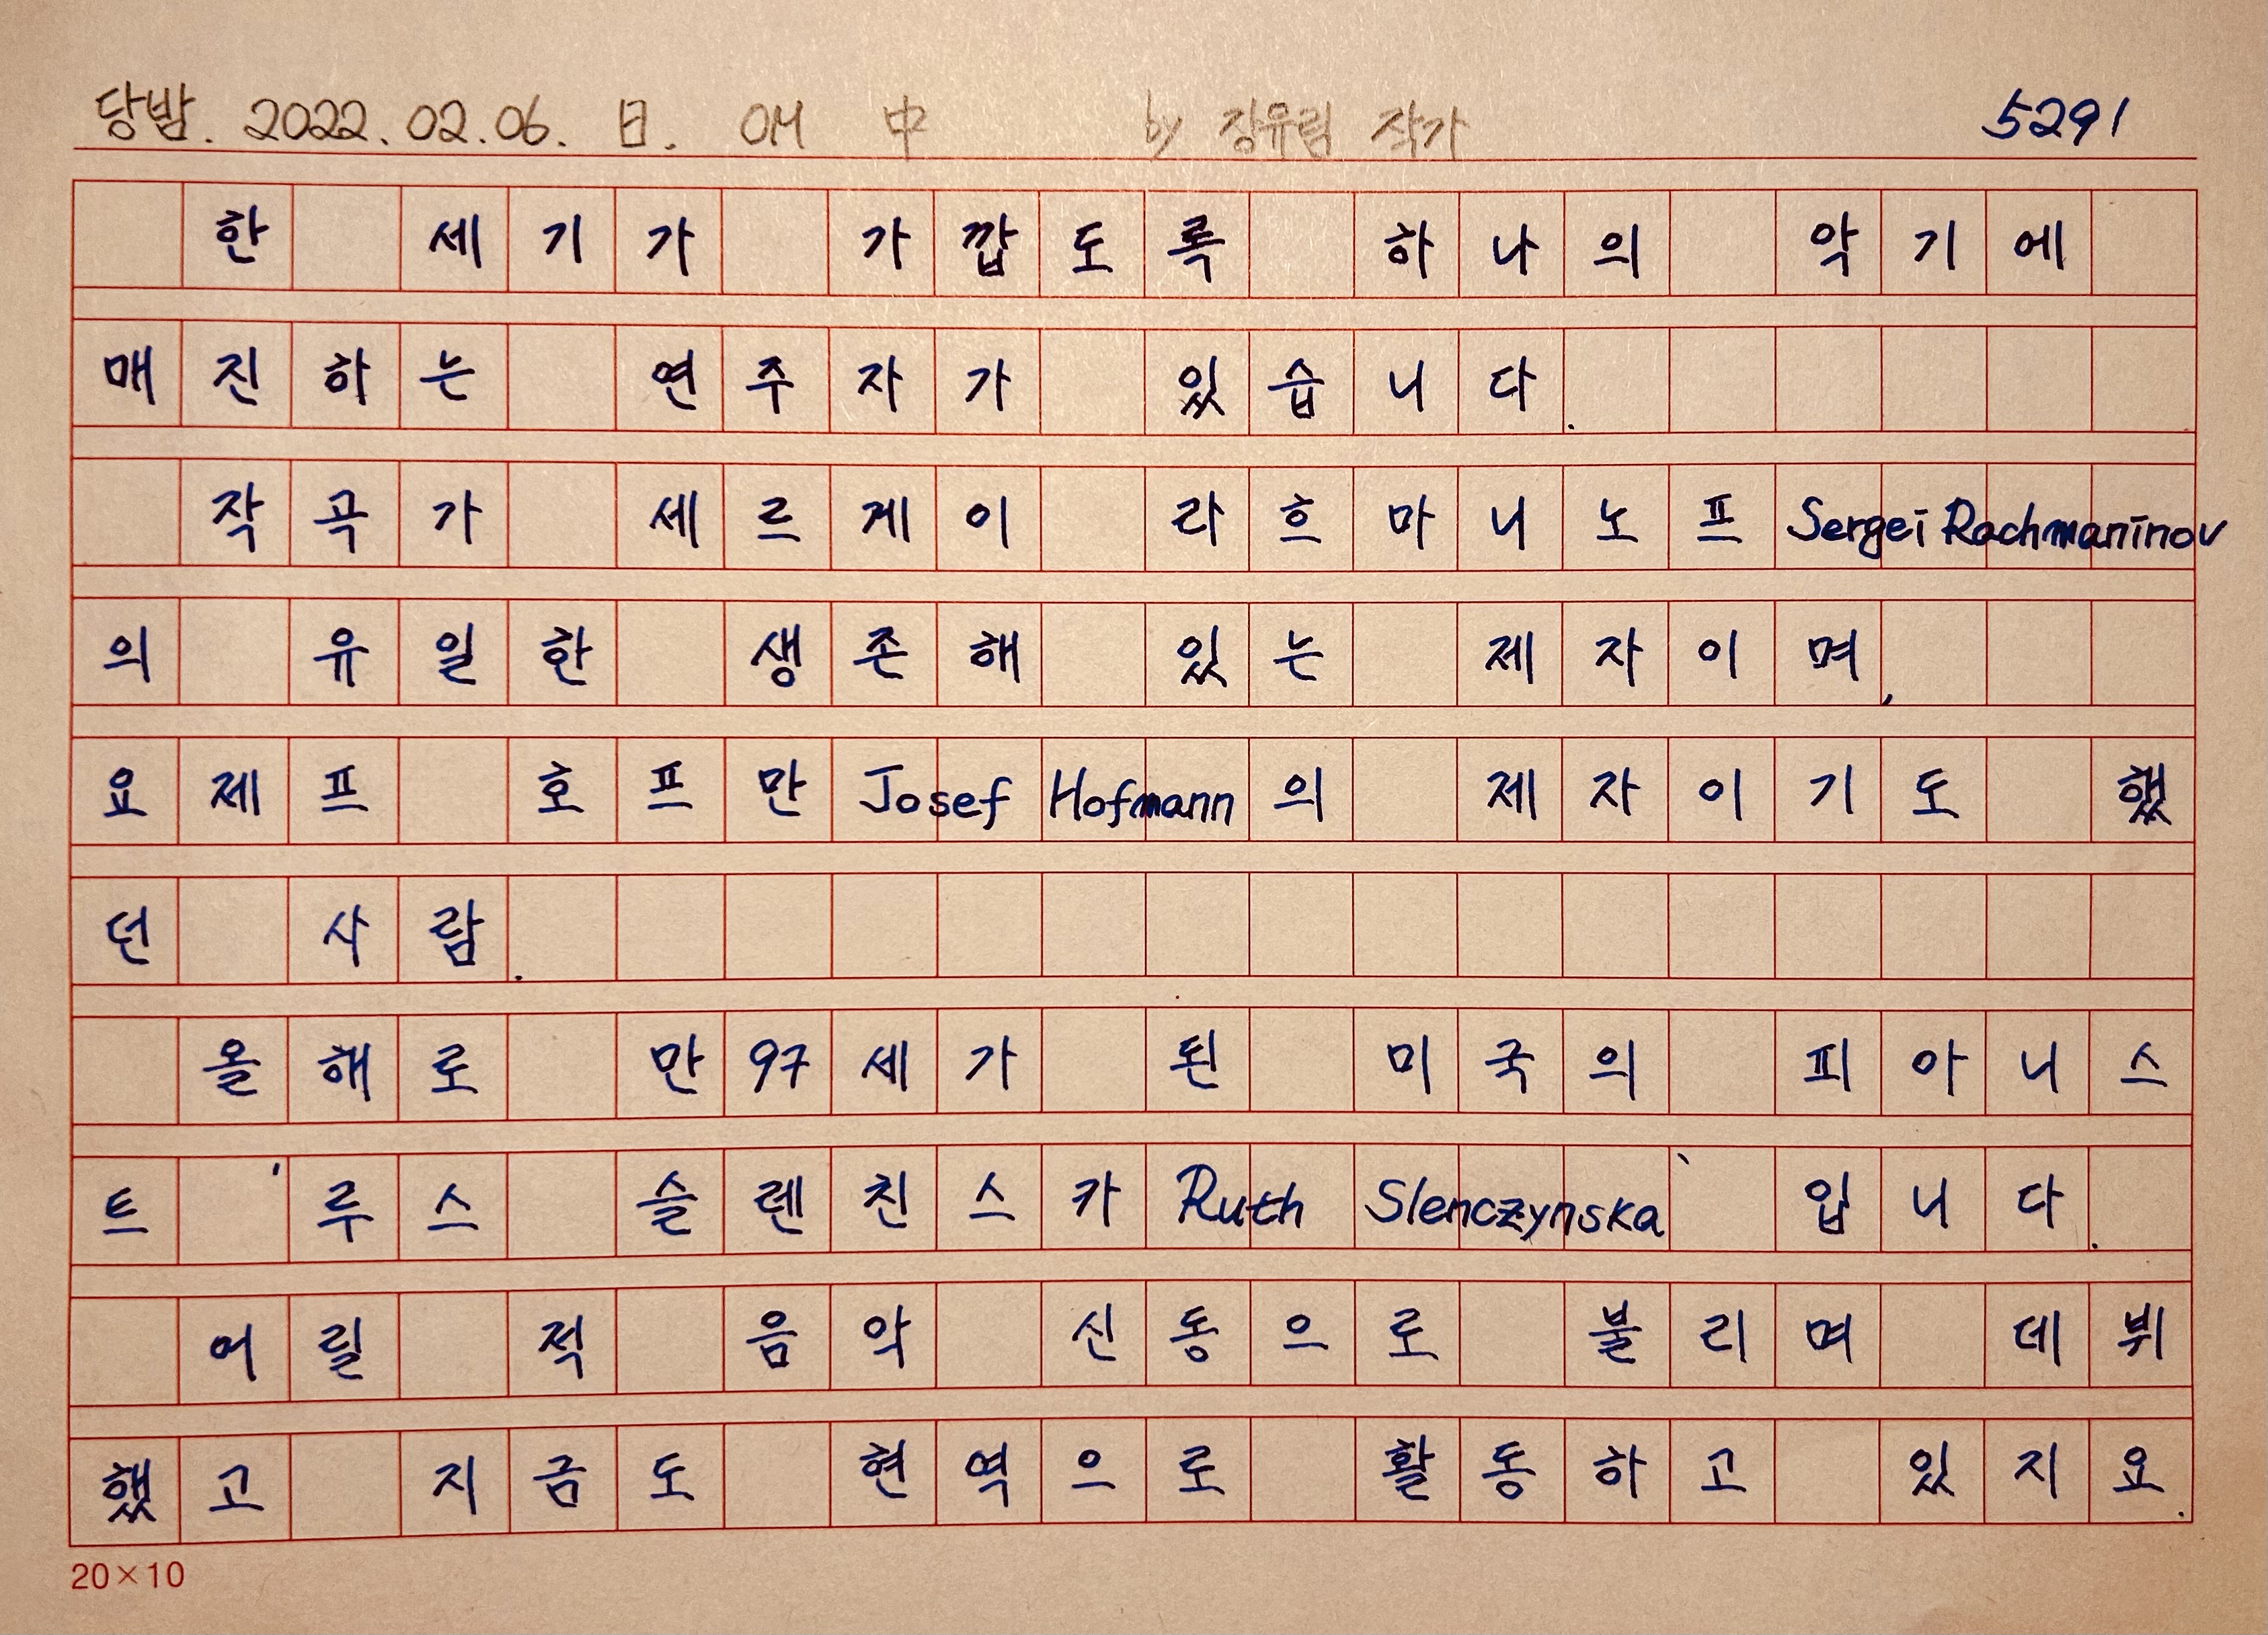 당밤. 2022.02.06. 日. OH 中 by 장유림 작가 5291
한 세기가 가깝도록 하나의 악기에
매진하는 연주자가 있습니다.
작곡가 세르게이 라흐마니노프 Sergei Rachmaninov
의 유일한 생존해 있는 제자이며,
요제프 호프만 Josef Hofmann의 제자이기도 했
던 사람.
올해로 만 97세가 된 미국의 피아니스
트 '루스 슬렌친스카 Ruth Slenczynska' 입니다.
어릴 적 음악 신동으로 불리며 데뷔
했고 지금도 현역으로 활동하고 있지요.
20×10